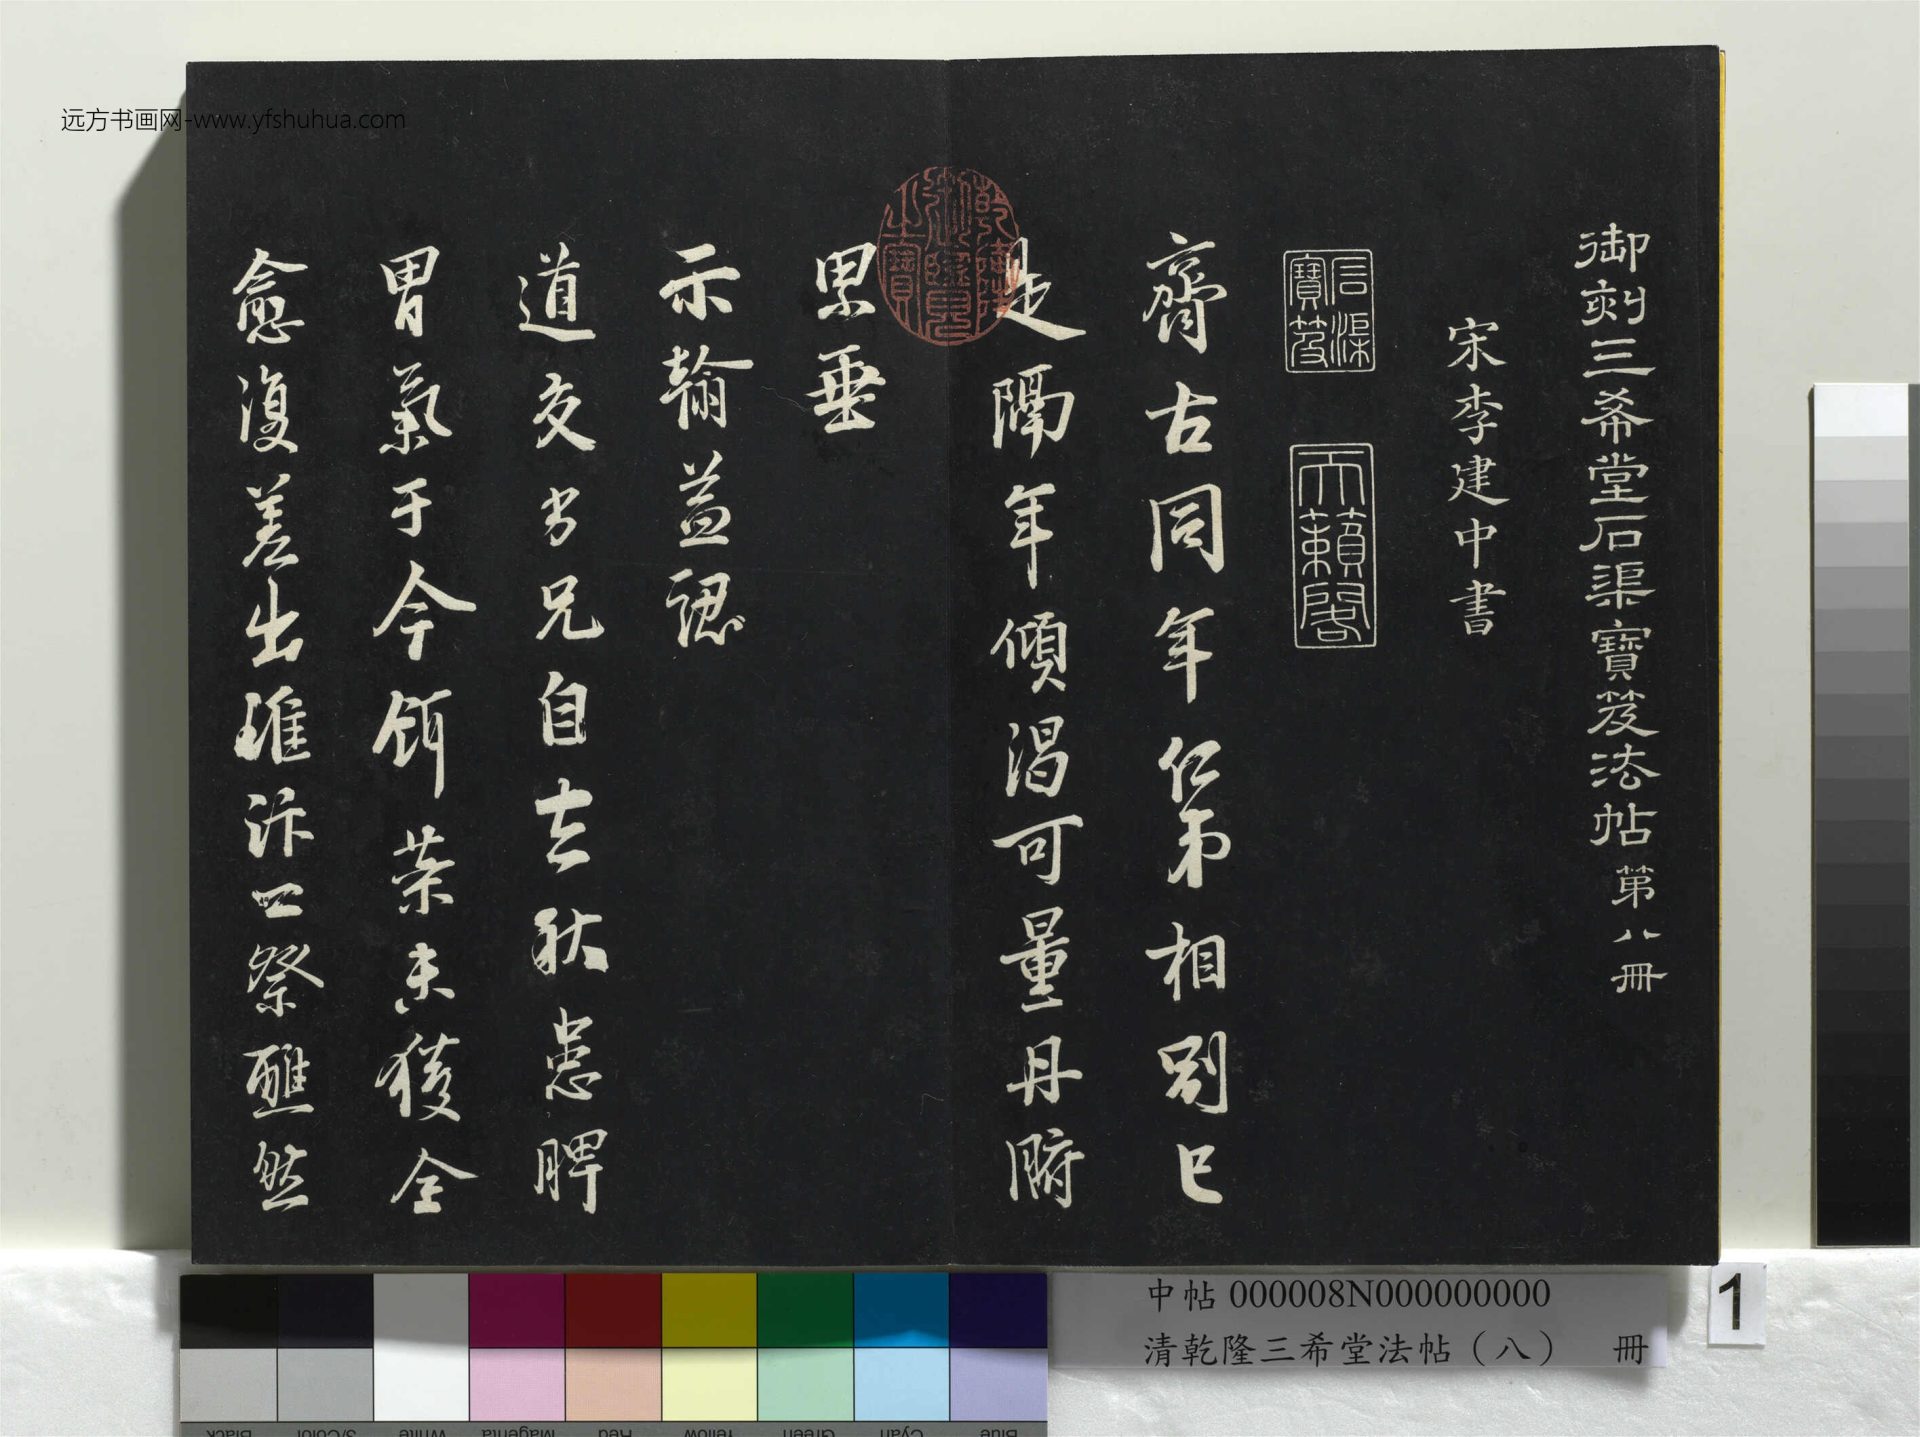 远方书画网-www.yfshuhua.com
御刻三希堂石渠寶笈法帖第八冊
宋李建中書
石渠寶笈
天籟閣
齊古同年仁弟相別已
是隔年傾渴可量丹膌
思垂
示翰益認
道交当兄自去秋患脾
胃氣于今餌藥未獲全
愈復差出雍汴口祭醮然
乾隆御覽之寶
中帖 000008N000000000
清乾隆三希堂法帖（八） 冊
1
Black
3/Color
White
Magenta
Red
Yellow
Green
Cyan
Blue